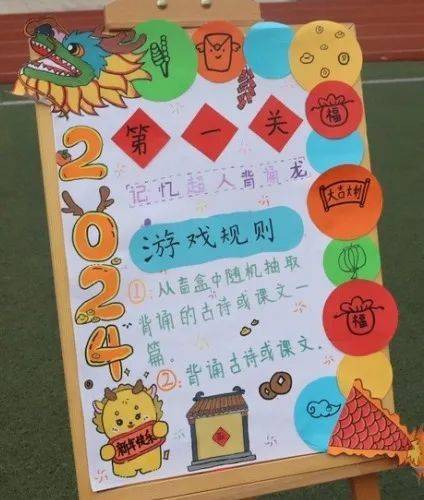 第一关
记忆超人背诵龙
游戏规则
①:从盲盒中随机抽取
背诵的古诗或课文一
篇。
②:背诵古诗或课文.
2024
福
大吉大利
福
新年快乐